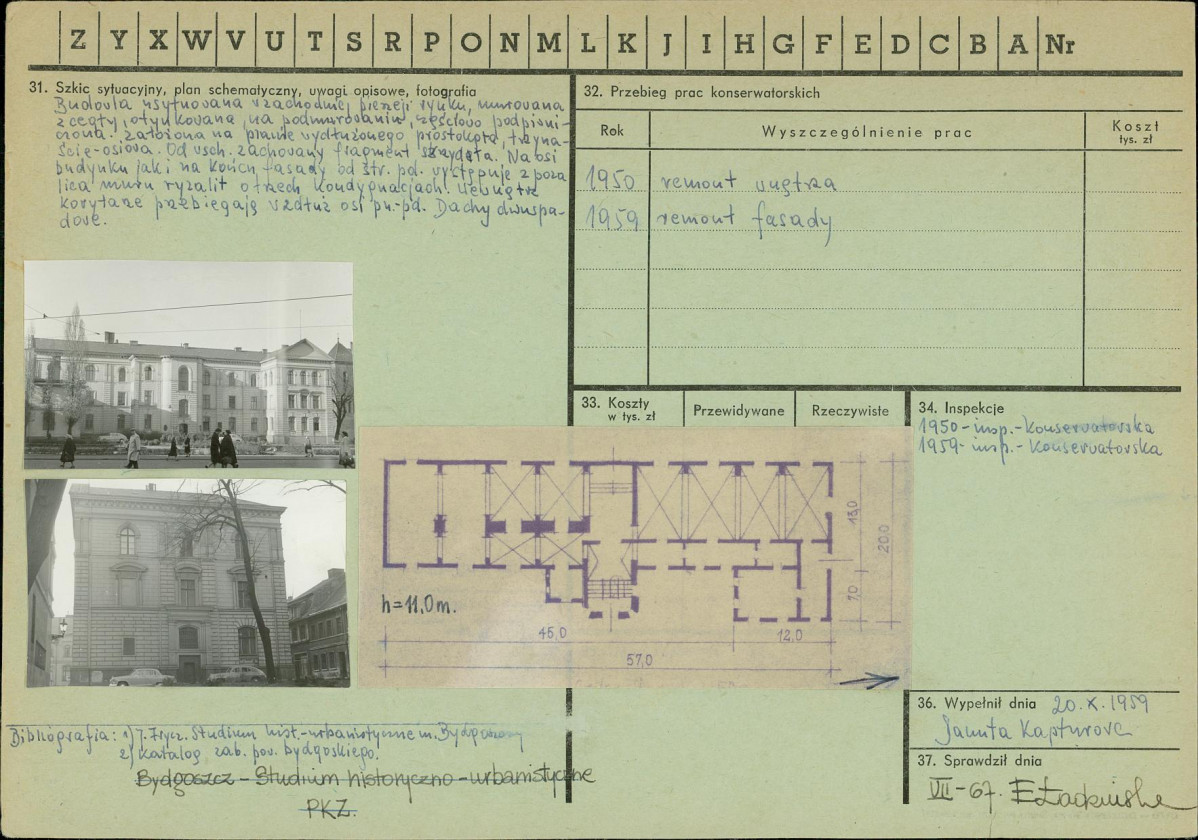 Z Y X W V U T S R P O N M L K J I H G F E D C B A Nr
31. Szkic sytuacyjny, plan schematyczny, uwagi opisowe, fotografia
Budowla usytuowana w zachodniej pierzeji rynku, murowana
z cegły, otynkowana, na podmurowaniu, częściowo podpiwni-
czona. Założona na planie wydłużonego prostokąta, trzyna-
ście-osiowa. Od wsch. zachowany fragment skrzydła. Na osi
budynku jak i na końcu fasady od str. pd. występuje z poza
lica muru ryzalit o trzech kondygnacjach. Wewnątrz
korytarze przebiegają wzdłuż osi pn.-pd. Dachy dwuspa-
dowe.
32. Przebieg prac konserwatorskich
Rok
Wyszczególnienie prac
Koszt
tys. zł
1950 remont wnętrza
1959 remont fasady
33. Koszty
w tys. zł
Przewidywane
Rzeczywiste
34. Inspekcje
1950 - insp. - Konserwatorska
1959 - insp. - Konserwatorska
h=11,0m.
13,0
20,0
7,0
45,0
12,0
57,0
36. Wypełnił dnia 20.X.1959
Janita Kapturova
37. Sprawdził dnia
VII-67.
Bibliografia: 1) J. Frycz. Studium hist.-urbanistyczne m. Bydgoszczy
2) Katalog zab. pow. bydgoskiego.
Bydgoszcz - Studium historyczno - urbanistyczne
PKZ.